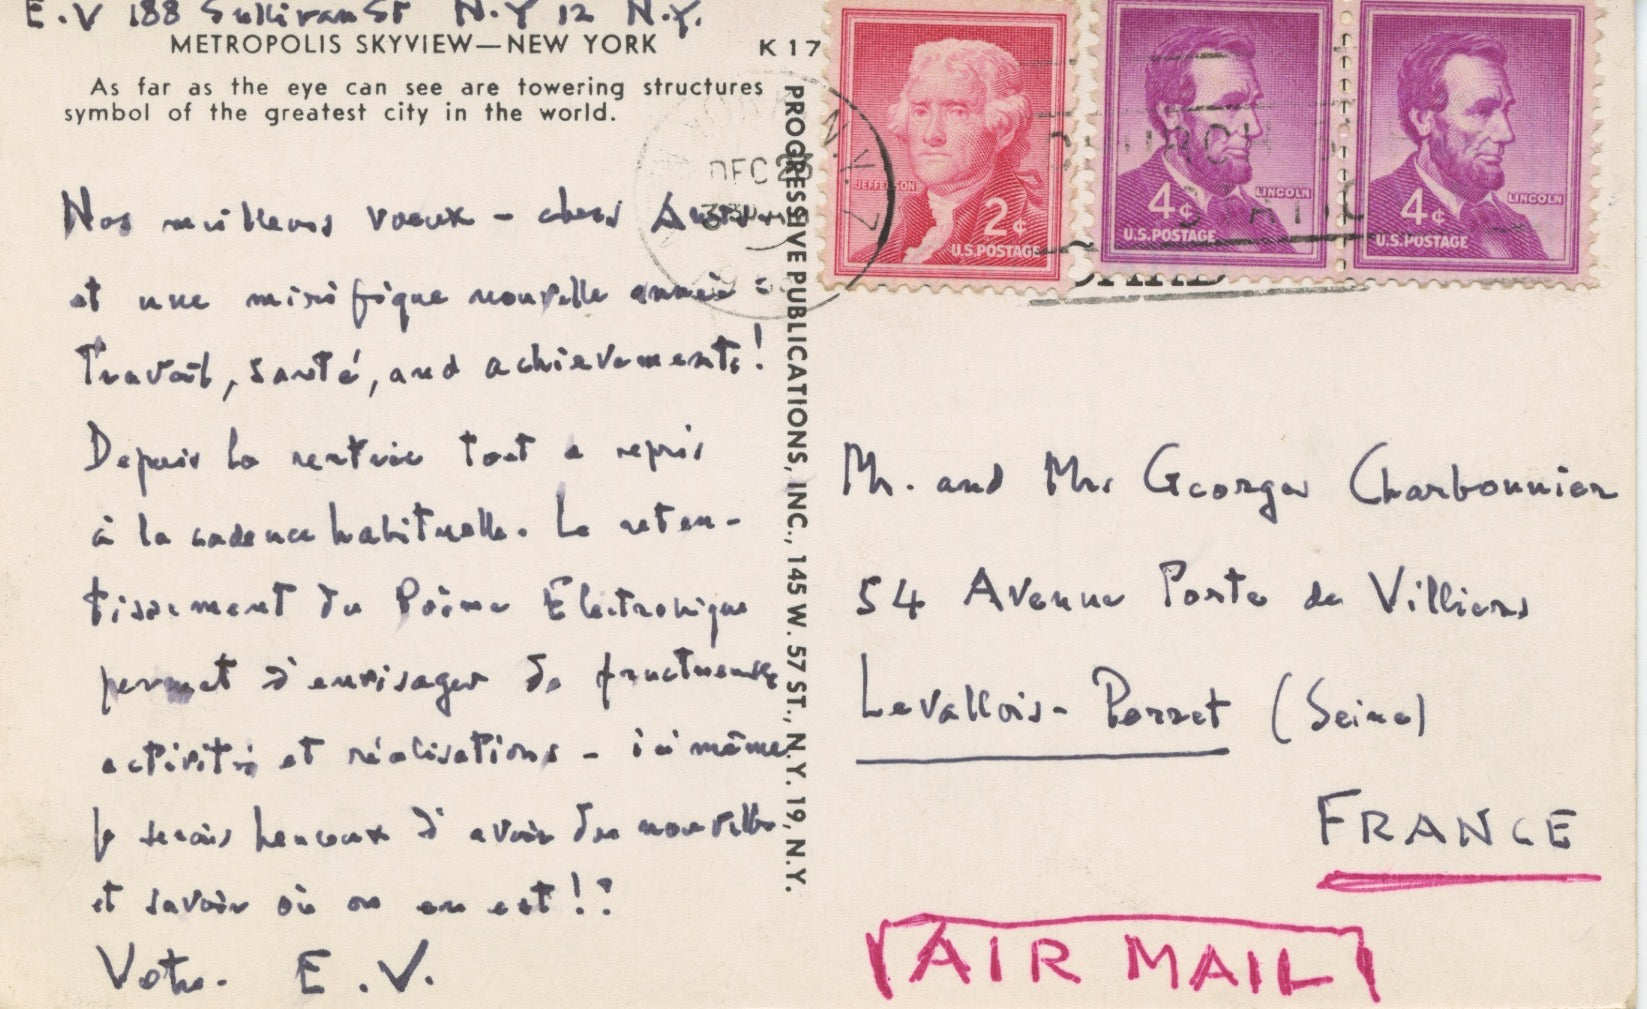 E.V 188 Sullivan St N.Y 12 N.Y.
METROPOLIS SKYVIEW—NEW YORK
K 17
As far as the eye can see are towering structures
symbol of the greatest city in the world.
Nos meilleurs voeux - chers Amis -
et une mirifique nouvelle année :
Travail, santé, and achievements!
Depuis la rentrée tout a repris
à la cadence habituelle. Le reten-
tissement du Poème Electronique
permet d'envisager de fructueuses
activités et réalisations - ici même
Je serais heureux d'avoir des nouvelles
et savoir où on en est!?
Votre. E.V.
PROGRESSIVE PUBLICATIONS, INC., 145 W. 57 ST., N.Y. 19, N.Y.
N.Y. 7
DEC 26
JEFFERSON
2¢
U.S.POSTAGE
LINCOLN
4¢
U.S.POSTAGE
LINCOLN
4¢
U.S.POSTAGE
CARD
Mr. and Mrs Georges Charbonnier
54 Avenue Porte de Villiers
Levallois-Perret (Seine)
FRANCE
AIR MAIL